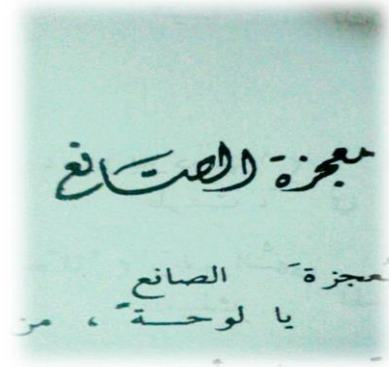 معجزة الصانع
معجزةَ الصانع
يا لوحـــةً ، من